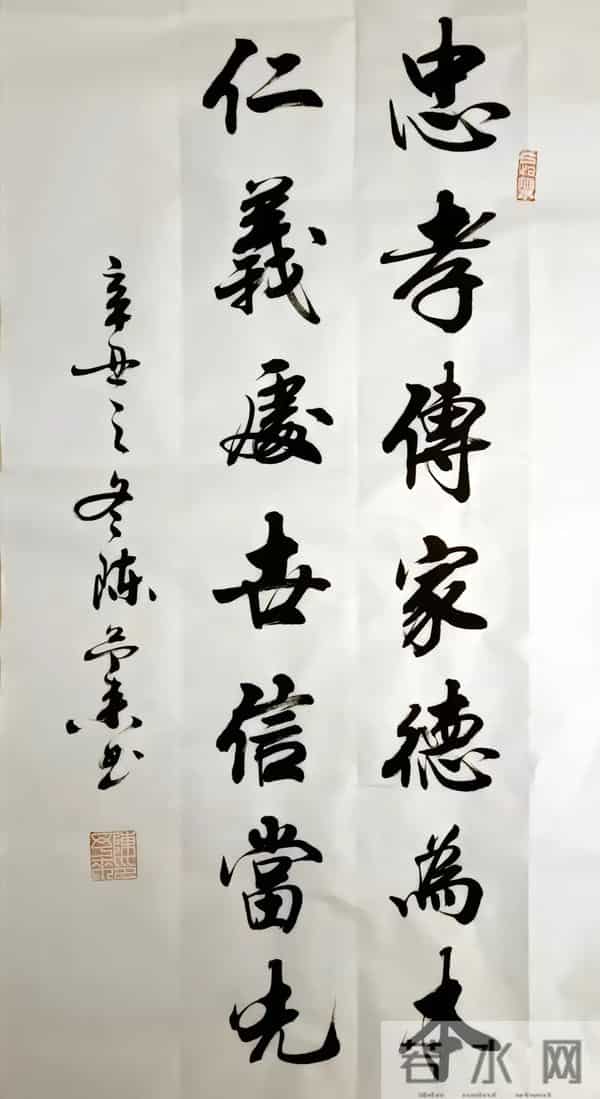 忠孝傳家德為本
仁義處世信當先
辛丑之冬陈書
若水网